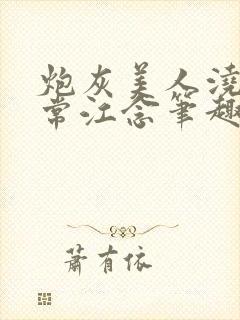 炮灰美人浇
常江念笔趣
萧有依